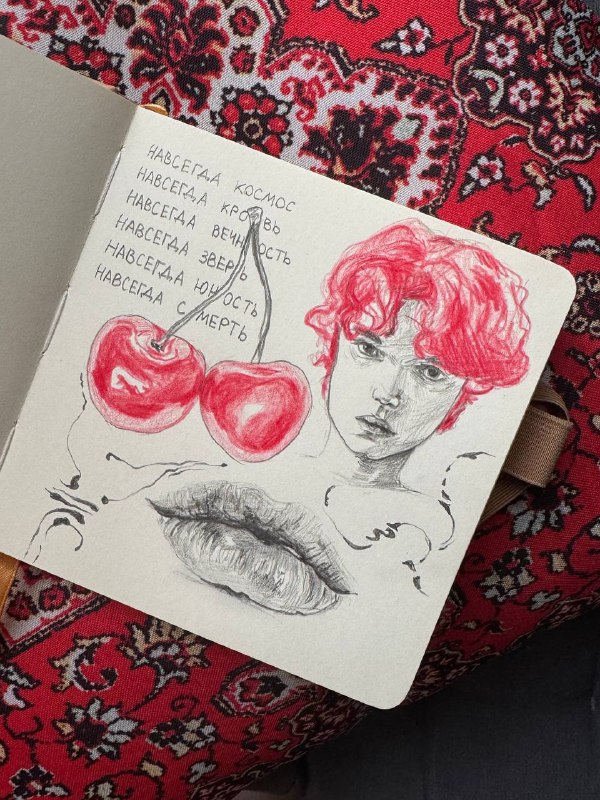 НАВСЕГДА КОСМОС
НАВСЕГДА КРОВЬ
НАВСЕГДА ВЕЧНОСТЬ
НАВСЕГДА ЗВЕРЬ
НАВСЕГДА ЮНОСТЬ
НАВСЕГДА СМЕРТЬ